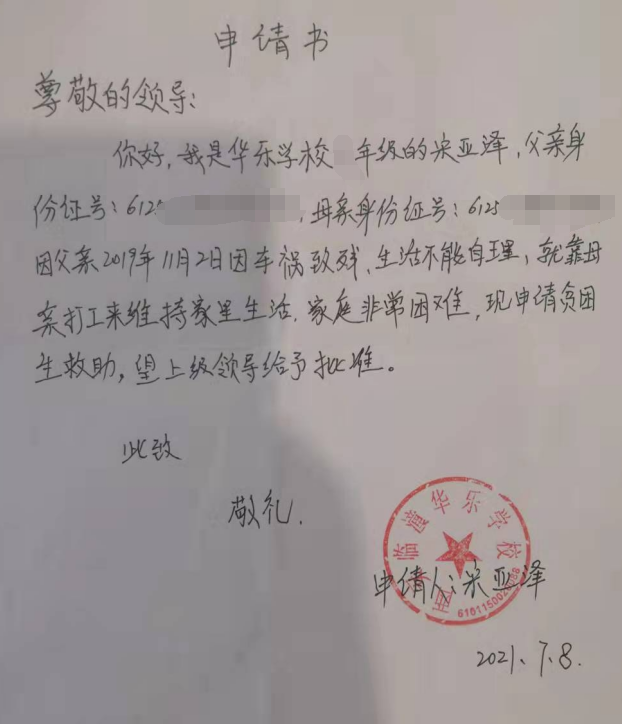 申请书
尊敬的领导:
你好,我是华乐学校 年级的宋亚泽,父亲身
份证号:6125 ,母亲身份证号:6125
因父亲2019年11月2日因车祸致残、生活不能自理,就靠母
亲打工来维持家里生活.家庭非常困难,现申请贫困
生救助,望上级领导给予批准。
此致
敬礼.
临潼华乐学校
申请人:宋亚泽
2021.7.8.